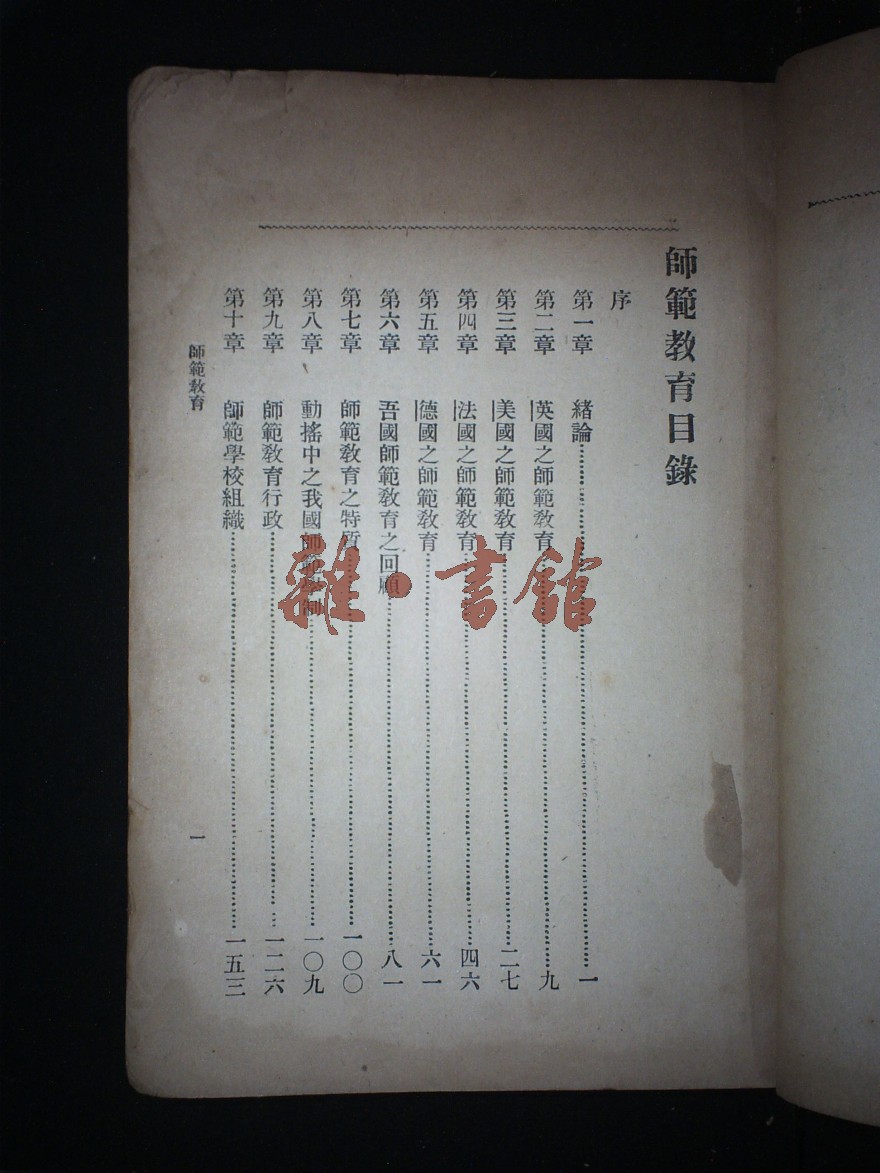 師範教育目錄
序
第一章 緒論……一
第二章 英國之師範敎育……九
第三章 美國之師範敎育……二七
第四章 法國之師範敎育……四六
第五章 德國之師範敎育……六一
第六章 吾國師範敎育之回顧……八一
第七章 師範敎育之特質……一〇〇
第八章 動搖中之我國師範學制……一〇九
第九章 師範敎育行政……一二六
第十章 師範學校組織……一五三
師範敎育
一
雜·書館